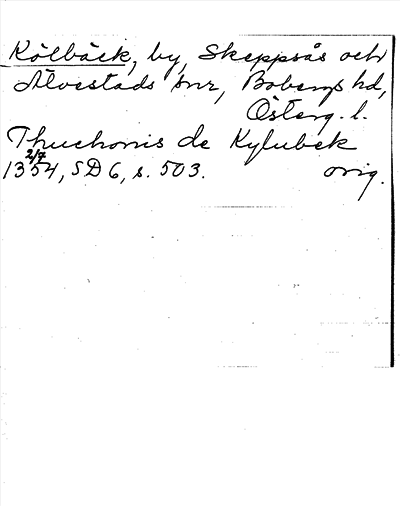 Kölbäck, by, Skeppsås och
Älvestads snr, Bobergs hd,
Österg. l.
Thuchonis de Kylubek
2/7
1354, SD 6, s. 503. orig.